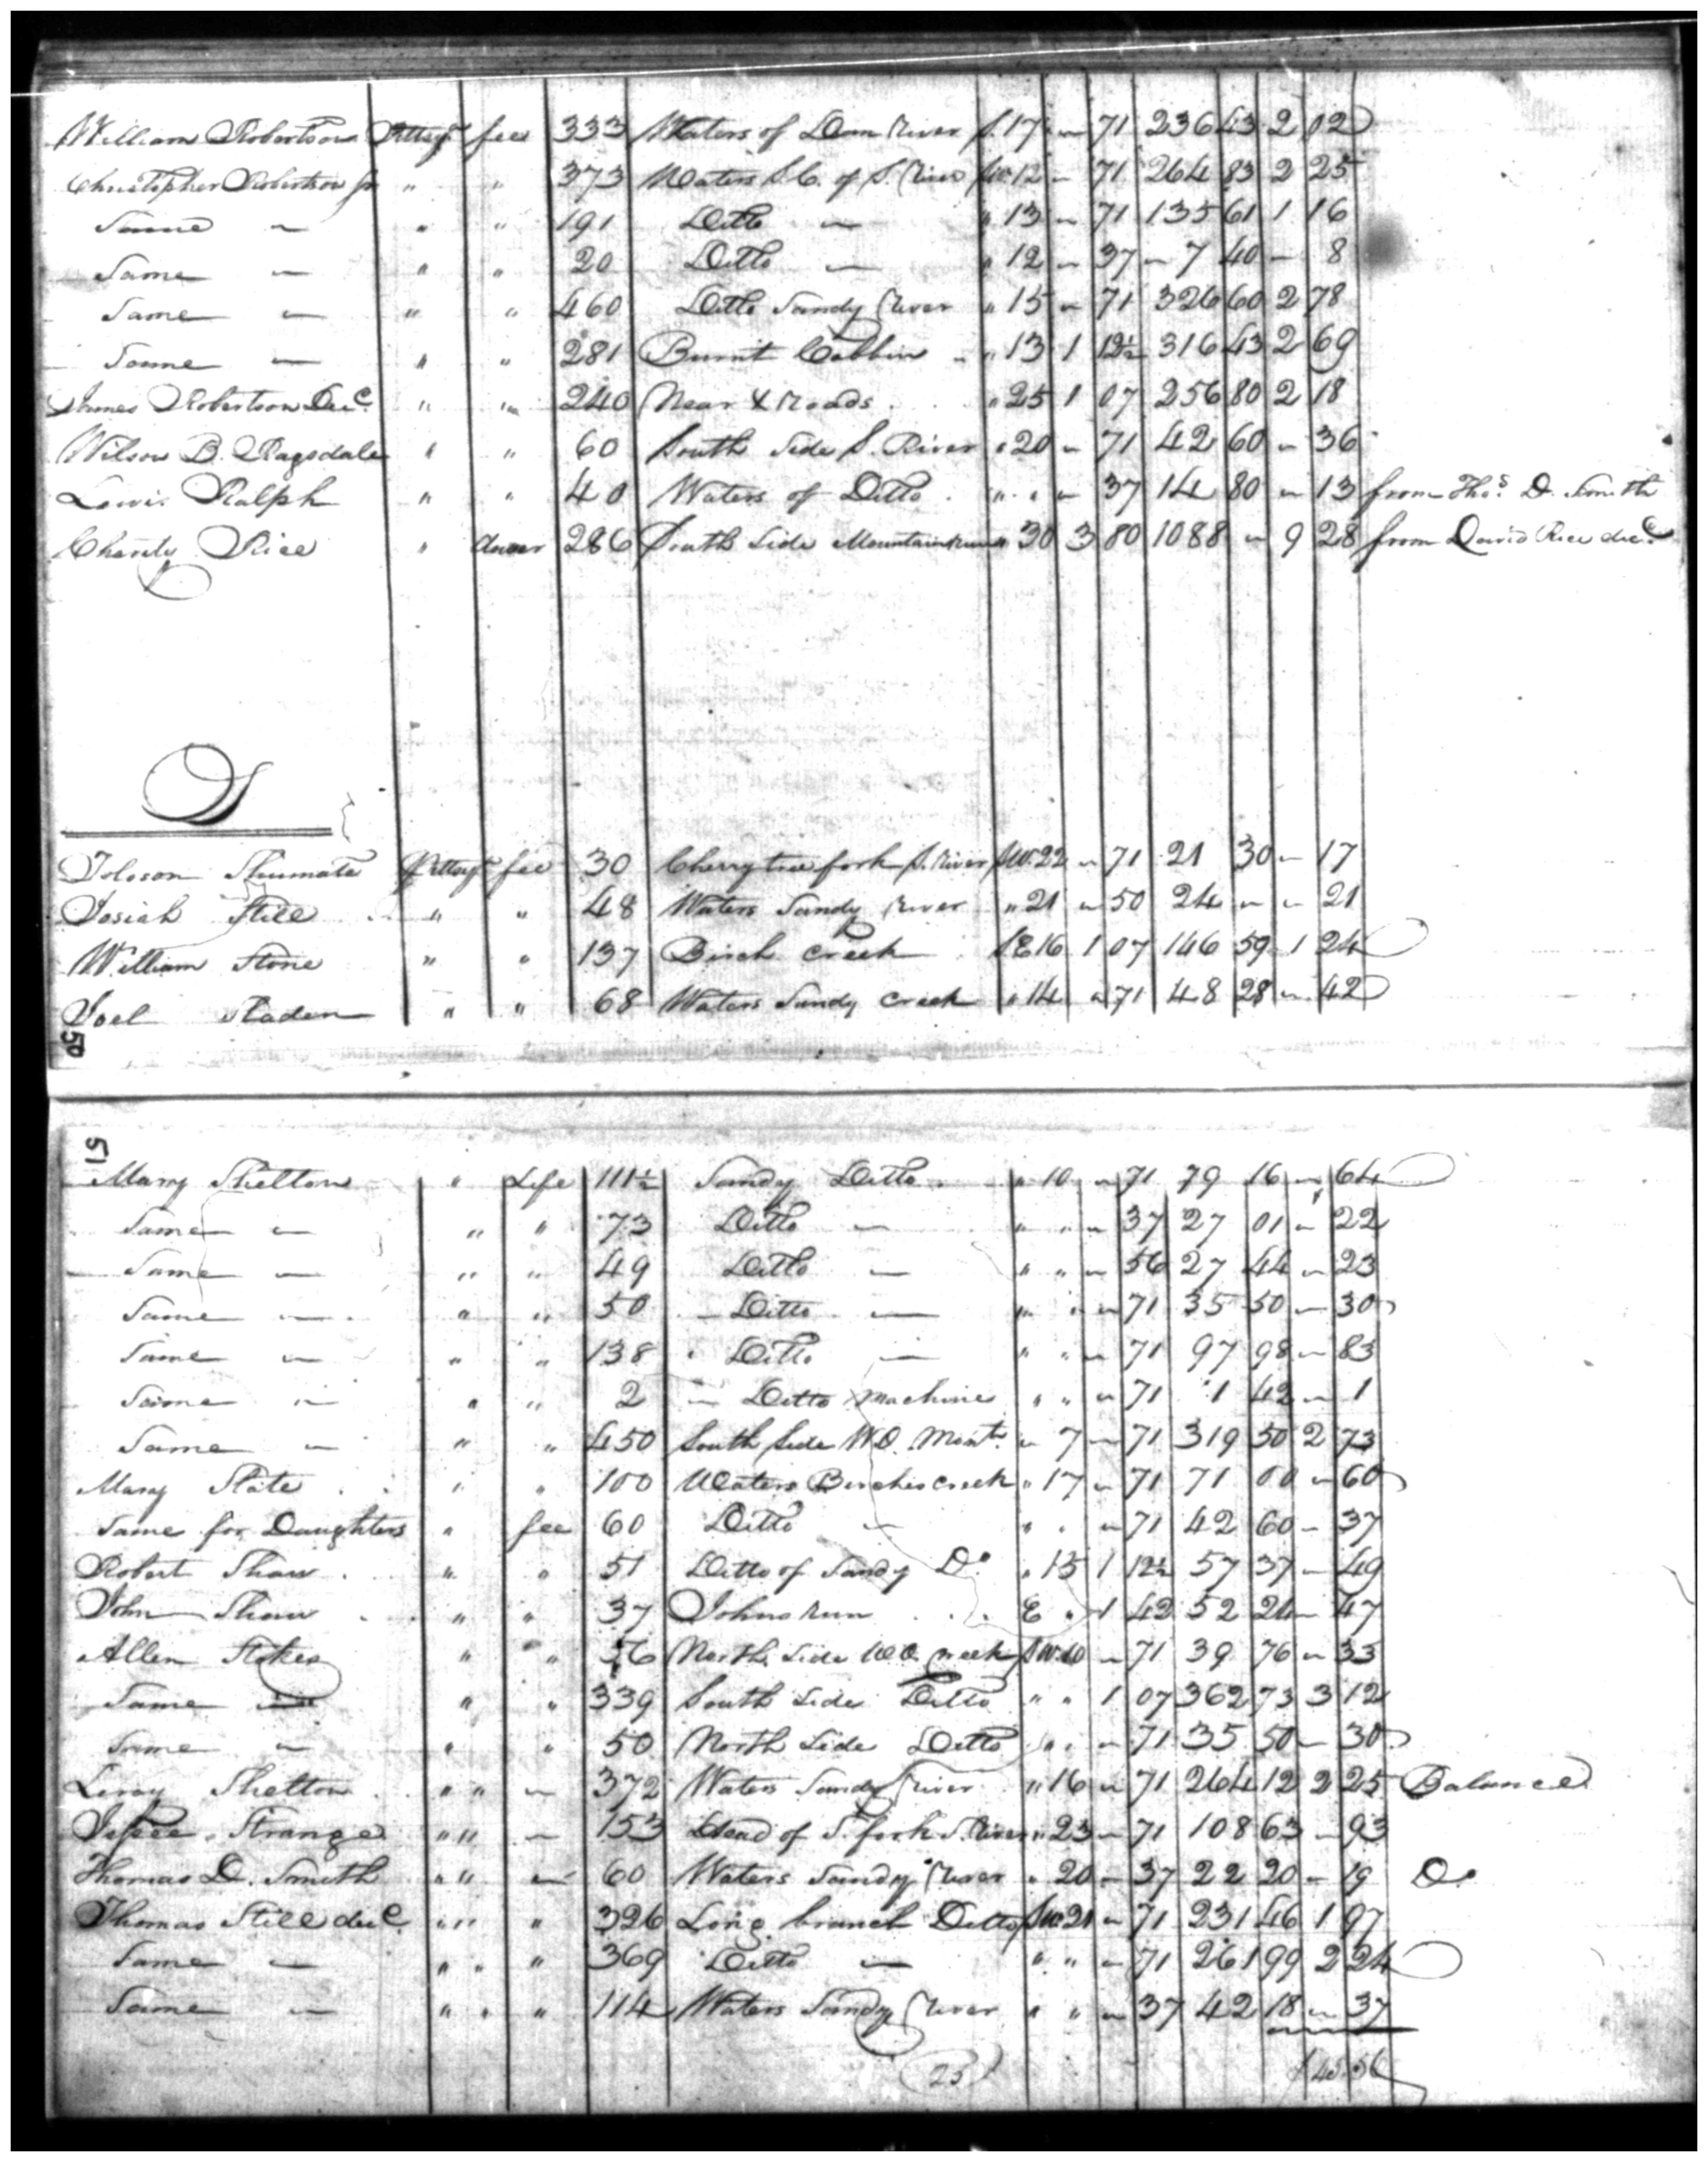 William Robertson Pittsyᵃ fee 333 Waters of Dan River S. 17 " 71 236 43 2 02
Christopher Robertson Jr " " 373 Waters S.C. of S. River SW 12 " 71 264 83 2 25
Same " " " 191 Ditto " " 13 " 71 135 61 1 16
Same " " " 20 Ditto " " 12 " 37 " 7 40 " 8
Same " " " 460 Ditto Sandy River " 15 " 71 326 60 2 78
Same " " " 281 Burnt Cabbin " " 13 1 12½ 316 43 2 69
James Robertson Decᵈ " " 240 Near X Roads " 25 1 07 256 80 2 18
Wilson B. Ragsdale " " 60 South Side S. River " 20 " 71 42 60 " 36
Lewis Ralph " " 40 Waters of Ditto " " " 37 14 80 " 13 from Thoˢ D. Smith
Charity Rice " dower 286 South Side Mountain " 30 3 80 1088 " 9 28 from David Rice decᵈ
S
Toloson Shumate Pittsyᵃ fee 30 Cherry tree fork S. River SW. 22 " 71 21 30 " 17
Josiah Still " " 48 Waters Sandy River " 21 " 50 24 " " 21
William Stone " " 137 Birch Creek SE 16 1 07 146 59 1 24
Joel Sladen " " 68 Waters Sandy Creek " 14 " 71 48 28 " 42
50
51
Mary Shelton " Life 111½ Sandy Ditto " 10 " 71 79 16 " 64
Same " " " 73 Ditto " " " " 37 27 01 " 22
Same " " " 49 Ditto " " " " 56 27 44 " 23
Same " " " 50 Ditto " " " " 71 35 50 " 30
Same " " " 138 Ditto " " " " 71 97 98 " 83
Same " " " 2 " Ditto Machine " " " 71 1 42 " 1
Same " " " 450 South Side W.O. Mont. " 7 " 71 319 50 2 73
Mary Slate " " 100 Waters Birches Creek " 17 " 71 71 00 " 60
Same for Daughters " fee 60 Ditto " " " " 71 42 60 " 37
Robert Shaw " " 51 Ditto of Sandy Dº " 15 1 12½ 57 37 " 49
John Shaw " " 37 Johns Run E " 1 42 52 24 " 47
Allen Stokes " " 56 North Side W.O. Creek SW. 10 " 71 39 76 " 33
Same " " " 339 South Side Ditto " " 1 07 362 73 3 12
Same " " " 50 North Side Ditto " " " 71 35 50 " 30
Leroy Shelton " " " 372 Waters Sandy River " 16 " 71 264 12 2 25 Balance
Jesse Strange " " " 153 Head of S. fork S. River " 23 " 71 108 63 " 93
Thomas D. Smith " " " 60 Waters Sandy River " 20 " 37 22 20 " 19 Dº
Thomas Still decᵈ " " " 326 Long branch Ditto SW. 21 " 71 231 46 1 97
Same " " " " 369 Ditto " " " " 71 261 99 2 24
Same " " " " 114 Waters Sandy River " " " 37 42 18 " 37
(25) $45.56